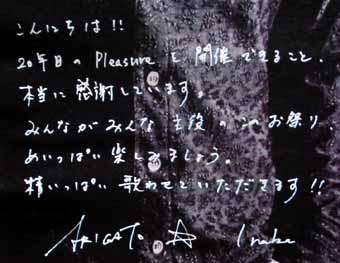 こんにちは!!
20年目の Pleasure を開催できること、
本当に感謝しています。
みんながみんな主役の お祭り、
めいっぱい楽しみましょう。
精いっぱい 歌わせていただきます!!
ARIGATO ☆ Inaba